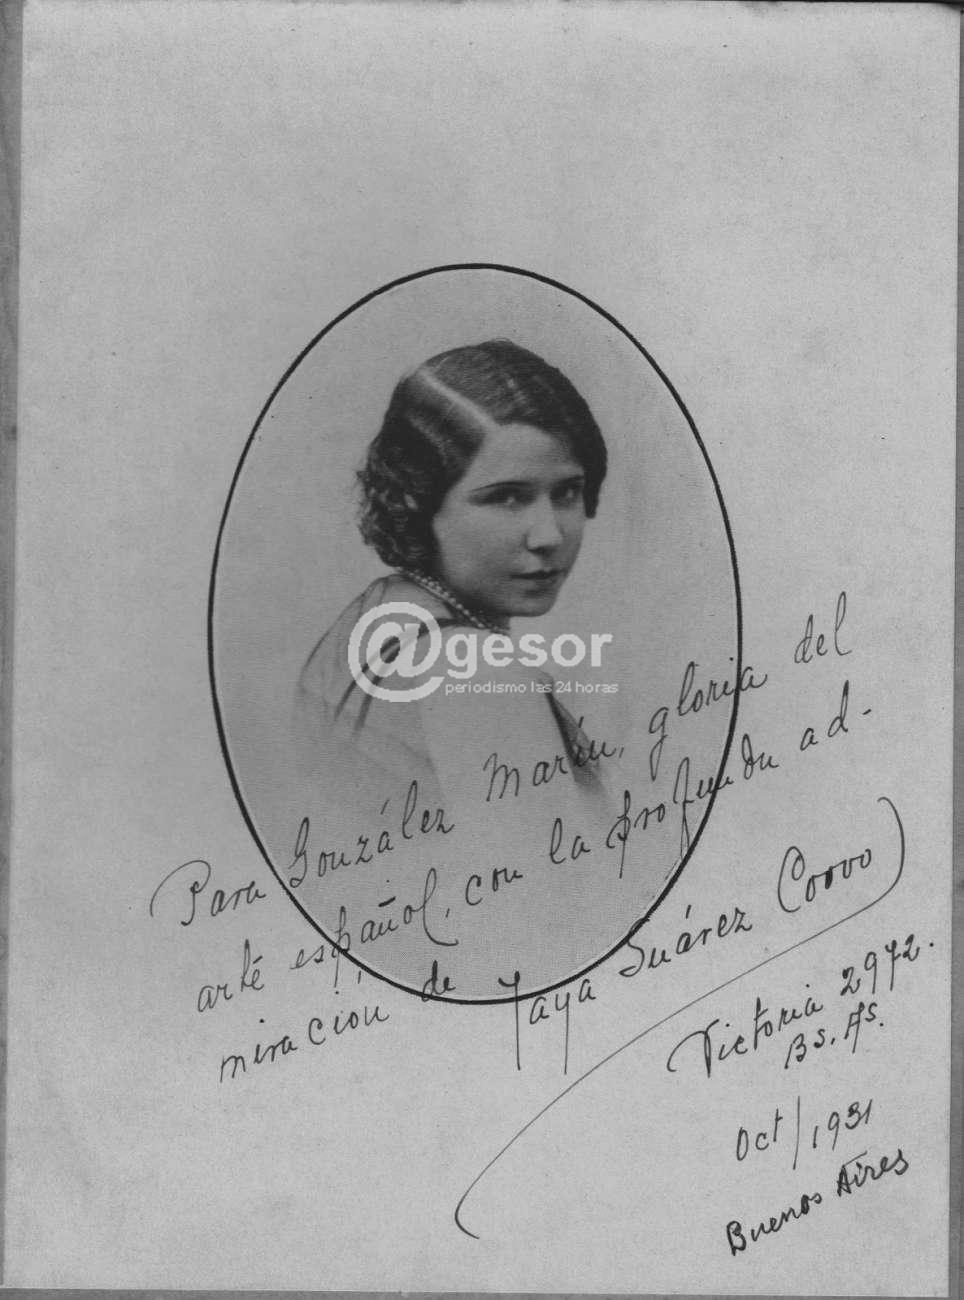 @gesor
periodismo las 24 horas
Para González Marín, gloria del
arte español, con la profunda ad-
miración de Yaya Suárez Corvo
Victoria 2972.
Bs. As.
Oct/1931
Buenos Aires